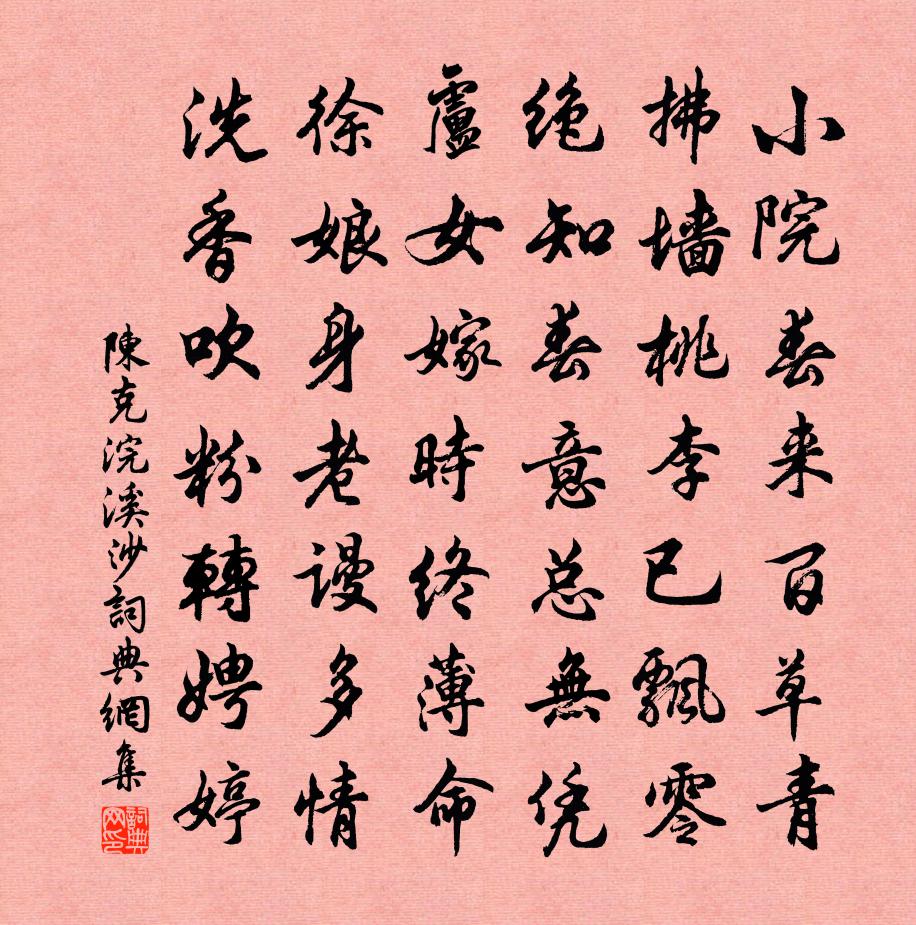 小院春来百草青
拂墙桃李已飄零
绝知春意总無凭
盧女嫁時终薄命
徐娘身老谩多情
洗香吹粉轉娉婷
陳克浣溪沙詞典網集
詞典网印